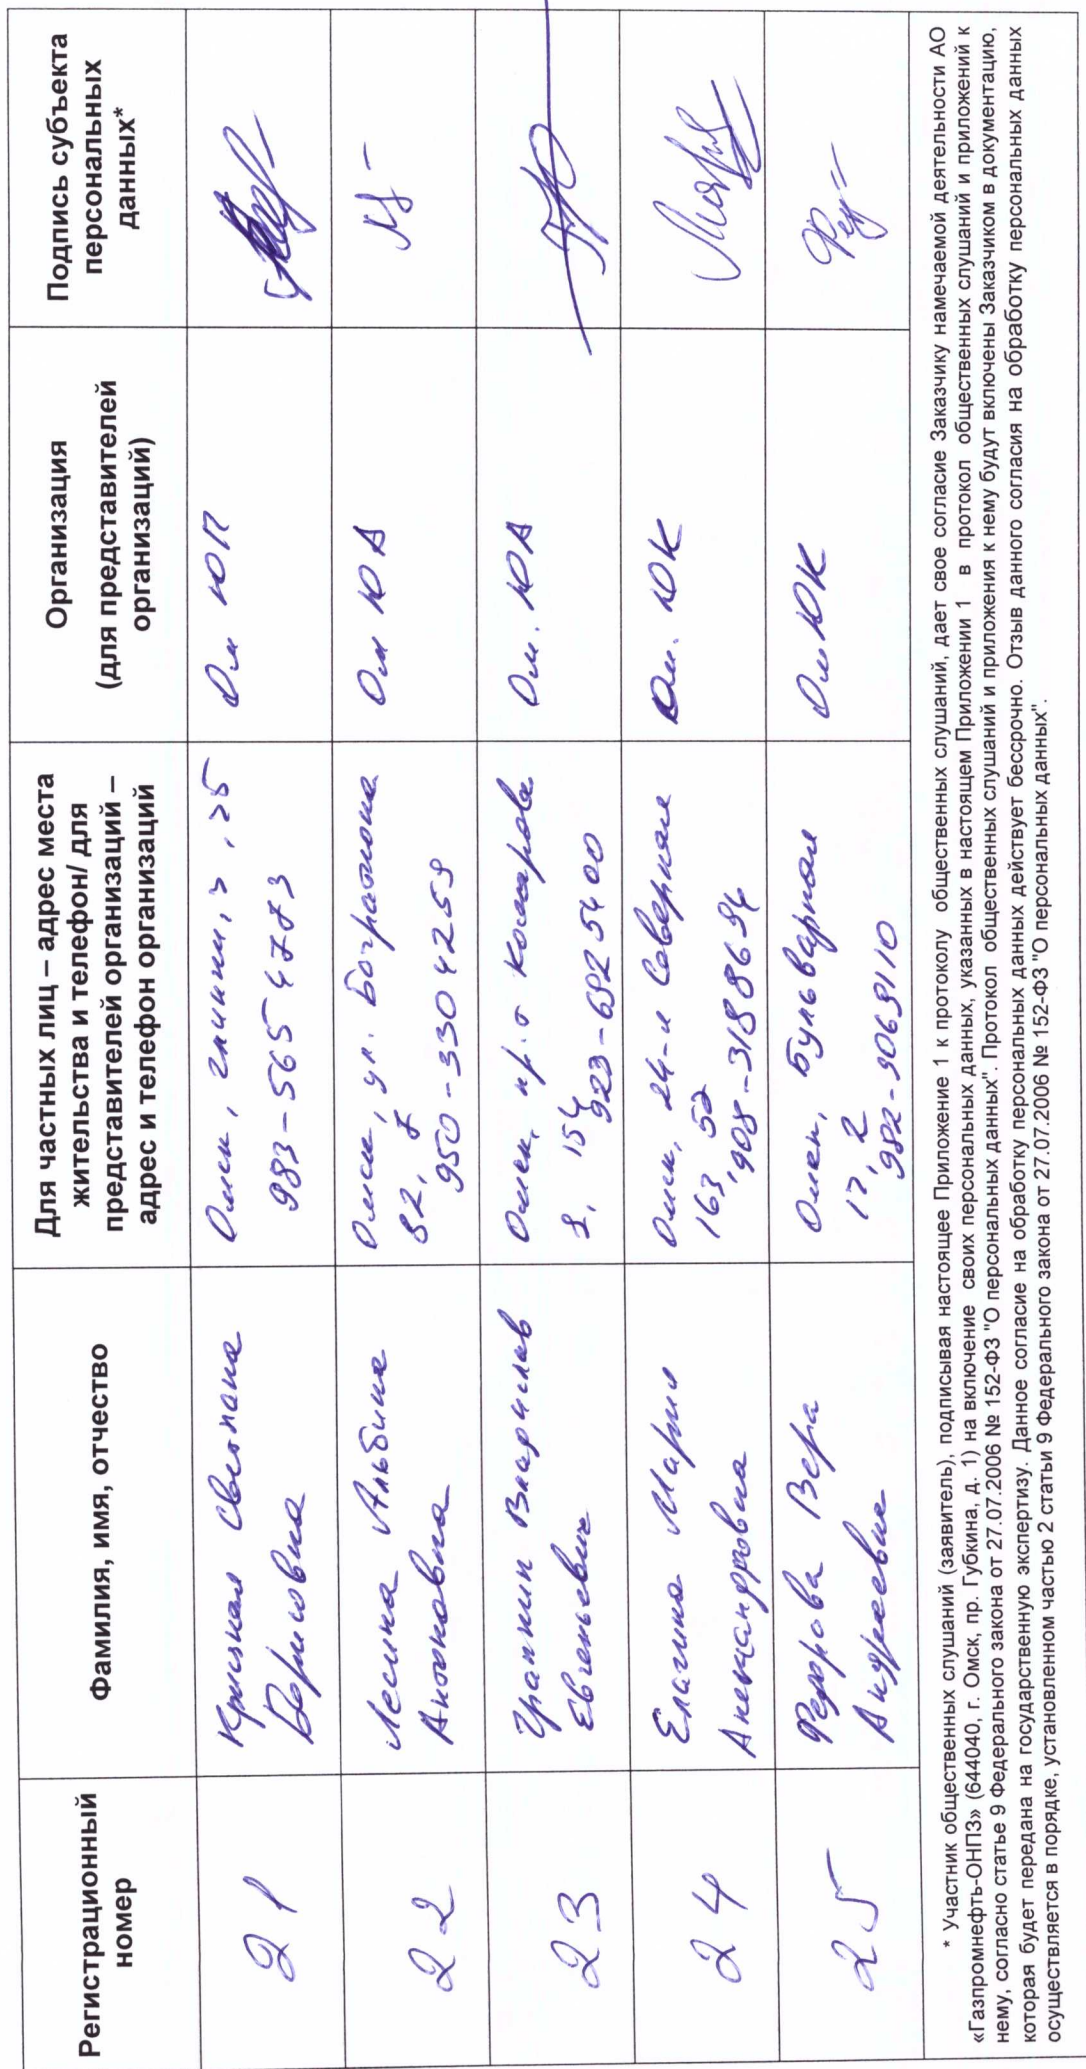 Регистрационный
номер
Фамилия, имя, отчество
Для частных лиц – адрес места
жительства и телефон/ для
представителей организаций –
адрес и телефон организаций
Организация
(для представителей
организаций)
Подпись субъекта
персональных
данных*
21
Светлана
Борисовна
Омск,
983-5654773
Ом ЮП
22
Лесина Альбина
Антоновна
Омск, ул. Багратиона
82, 7
950-3304259
Ом ЮА
23
Владислав
Евгеньевич
Омск, пр. Комарова
154
923-6925400
Ом. ЮА
24
Елагина Мария
Александровна
Омск, 24-я Северная
163, 52
908-3188694
Ом. ЮК
25
Федорова Вера
Андреевна
Омск, Бульварная
17, 2
982-9069110
Ом ЮК
* Участник общественных слушаний (заявитель), подписывая настоящее Приложение 1 к протоколу общественных слушаний, дает свое согласие Заказчику намечаемой деятельности АО
«Газпромнефть-ОНПЗ» (644040, г. Омск, пр. Губкина, д. 1) на включение своих персональных данных, указанных в настоящем Приложении 1 в протокол общественных слушаний и приложений к
нему, согласно статье 9 Федерального закона от 27.07.2006 № 152-ФЗ "О персональных данных". Протокол общественных слушаний и приложения к нему будут включены Заказчиком в документацию,
которая будет передана на государственную экспертизу. Данное согласие на обработку персональных данных действует бессрочно. Отзыв данного согласия на обработку персональных данных
осуществляется в порядке, установленном частью 2 статьи 9 Федерального закона от 27.07.2006 № 152-ФЗ "О персональных данных".